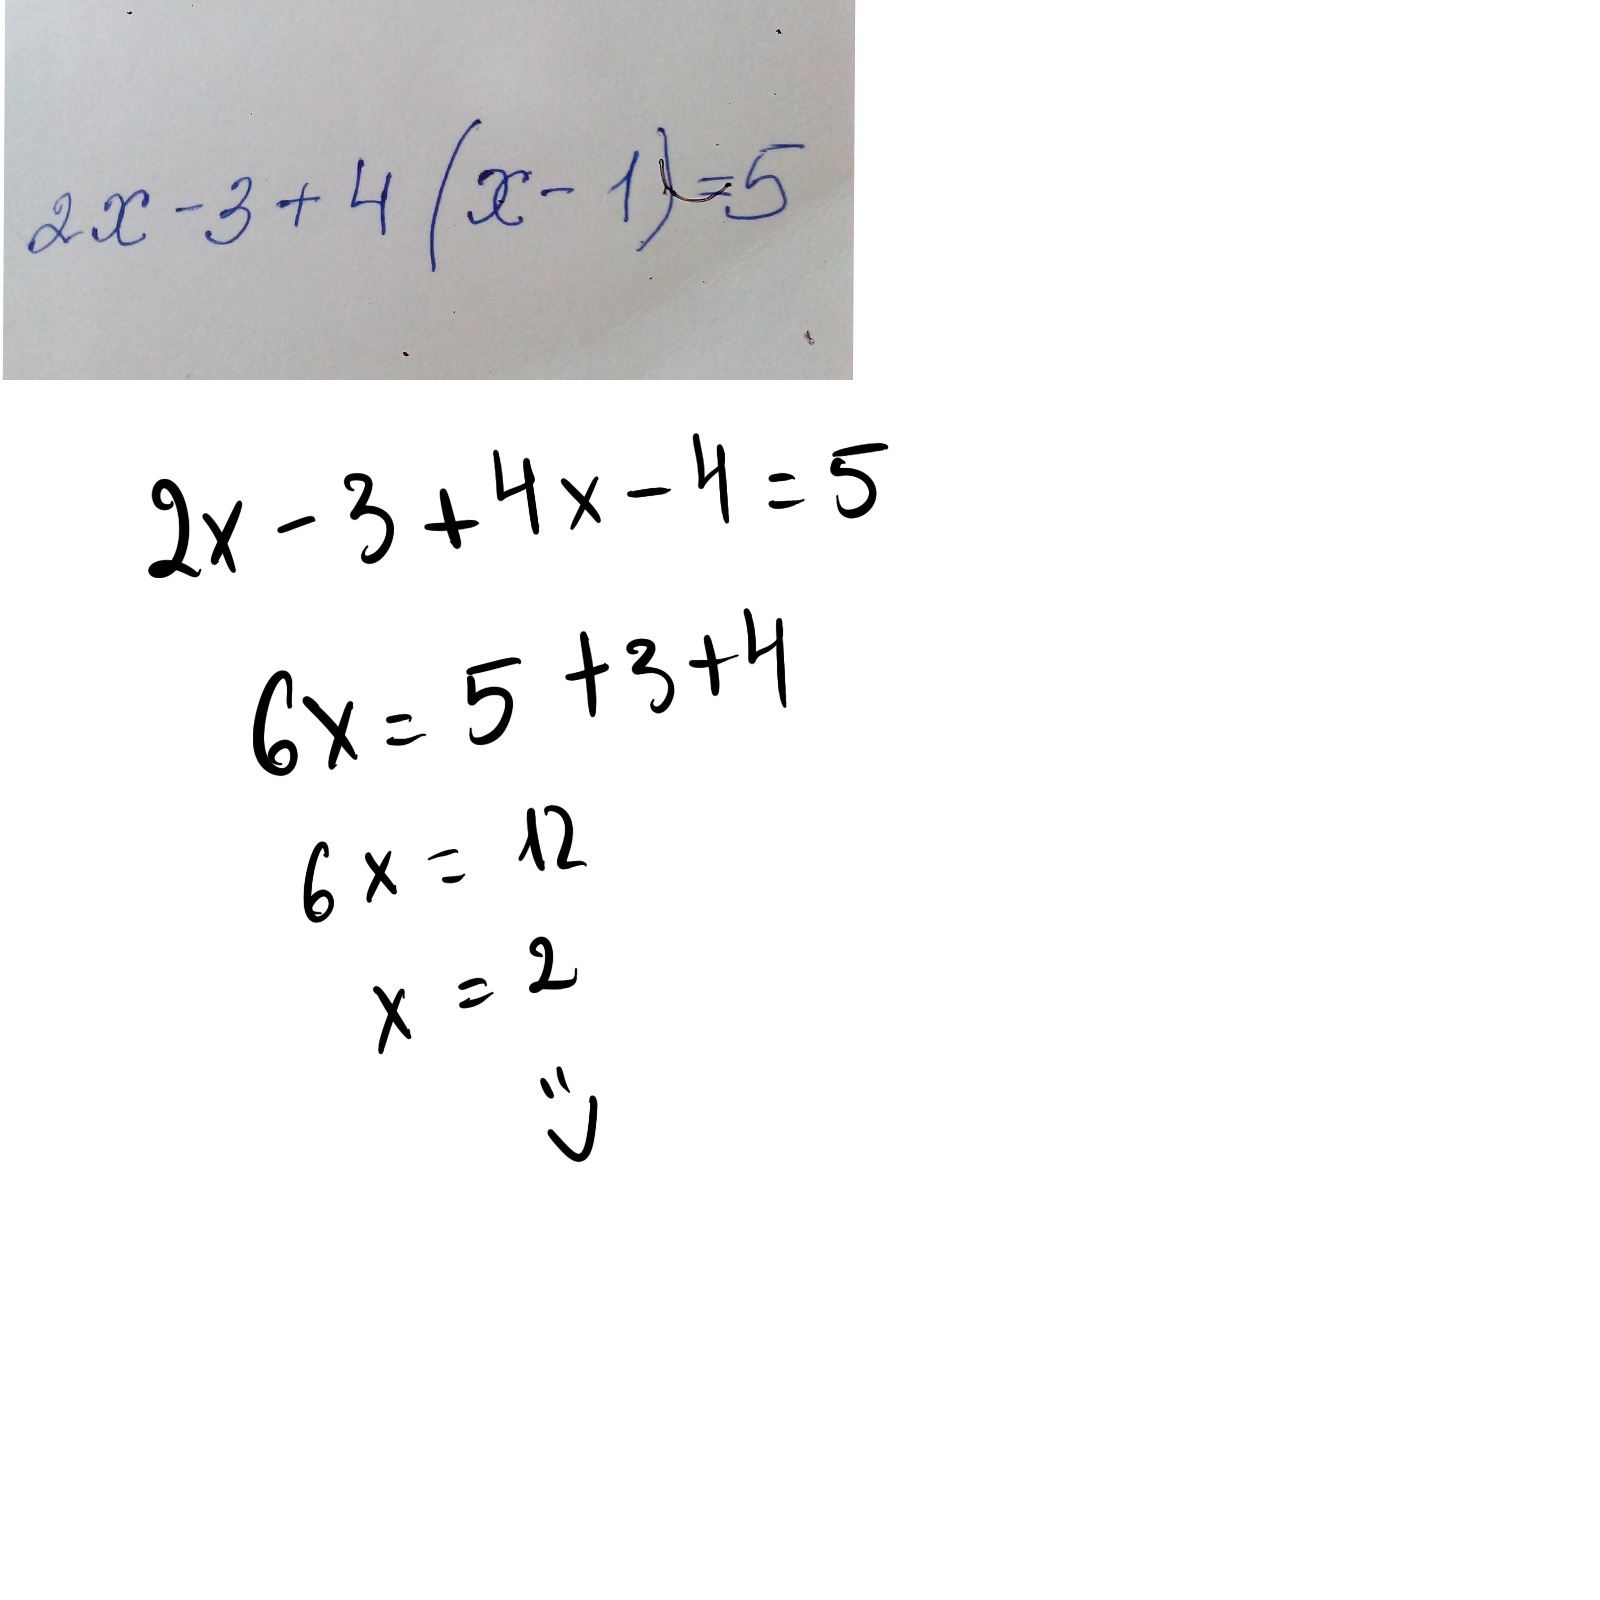 2x-3+4(x-1)=5
2x-3+4x-4=5
6x=5+3+4
6x=12
x=2